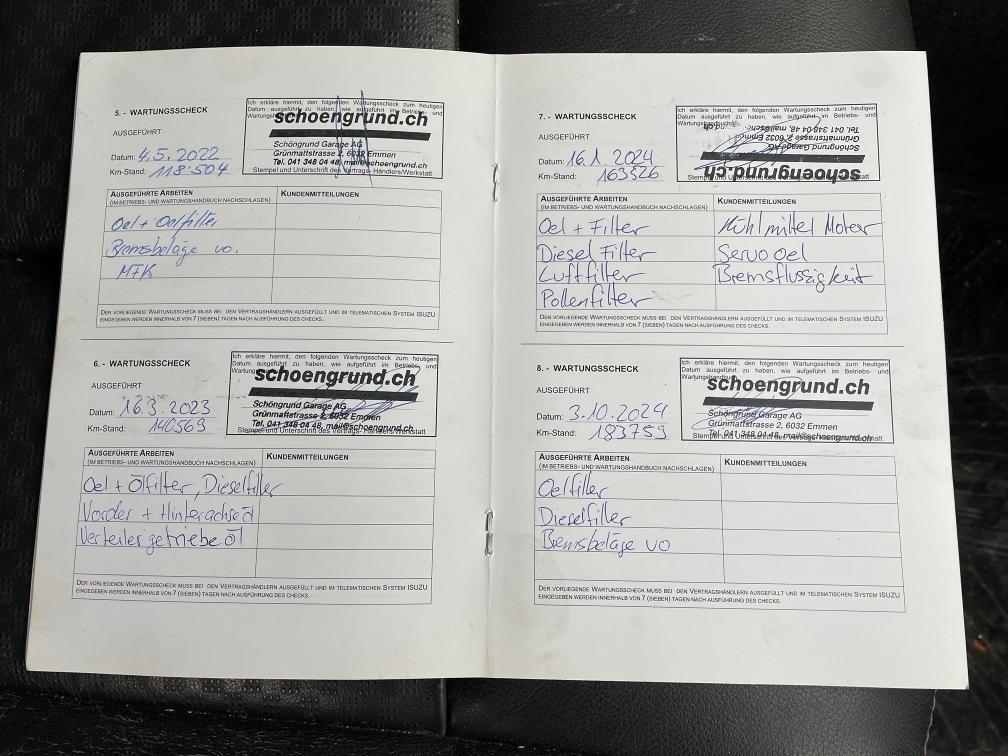 5. - WARTUNGSSCHECK
AUSGEFÜHRT
Datum: 4.5.2022
Km-Stand: 118'504
Ich erkläre hiermit, den folgenden Wartungsscheck zum heutigen
Datum ausgeführt zu haben, wie aufgeführt im Betriebs- und
schoengrund.ch
Schöngrund Garage AG
Grünmattstrasse 2, 6032 Emmen
Tel. 041 348 04 48, mail@schoengrund.ch
Stempel und Unterschrift des Vertrags- Händlers/Werkstatt
AUSGEFÜHRTE ARBEITEN
(IM BETRIEBS- UND WARTUNGSHANDBUCH NACHSCHLAGEN)
KUNDENMITTEILUNGEN
Oel + Oelfilter
Bremsbeläge vo.
MFK
DER VORLIEGENDE WARTUNGSCHECK MUSS BEI DEN VERTRAGSHÄNDLERN AUSGEFÜLLT UND IM TELEMATISCHEN SYSTEM ISUZU
EINGEGEBEN WERDEN INNERHALB VON 7 (SIEBEN) TAGEN NACH AUSFÜHRUNG DES CHECKS.
6. - WARTUNGSSCHECK
AUSGEFÜHRT
Datum: 16.3.2023
Km-Stand: 140569
Ich erkläre hiermit, den folgenden Wartungsscheck zum heutigen
Datum ausgeführt zu haben, wie aufgeführt im Betriebs- und
schoengrund.ch
Schöngrund Garage AG
Grünmattstrasse 2, 6032 Emmen
Tel. 041 348 04 48, mail@schoengrund.ch
Stempel und Unterschrift des Vertrags- Händlers/Werkstatt
AUSGEFÜHRTE ARBEITEN
(IM BETRIEBS- UND WARTUNGSHANDBUCH NACHSCHLAGEN)
KUNDENMITTEILUNGEN
Oel + Ölfilter, Dieselfilter
Vorder + Hinterachseöl
Verteilergetriebeöl
DER VORLIEGENDE WARTUNGSCHECK MUSS BEI DEN VERTRAGSHÄNDLERN AUSGEFÜLLT UND IM TELEMATISCHEN SYSTEM ISUZU
EINGEGEBEN WERDEN INNERHALB VON 7 (SIEBEN) TAGEN NACH AUSFÜHRUNG DES CHECKS.
7. - WARTUNGSSCHECK
AUSGEFÜHRT
Datum: 16.1.2024
Km-Stand: 163526
Ich erkläre hiermit, den folgenden Wartungsscheck zum heutigen
Datum ausgeführt zu haben, wie aufgeführt im Betriebs- und
schoengrund.ch
Schöngrund Garage AG
Grünmattstrasse 2, 6032 Emmen
Tel. 041 348 04 48, mail@schoengrund.ch
Stempel und Unterschrift des Vertrags- Händlers/Werkstatt
AUSGEFÜHRTE ARBEITEN
(IM BETRIEBS- UND WARTUNGSHANDBUCH NACHSCHLAGEN)
KUNDENMITTEILUNGEN
Oel + Filter Kühlmittel Motor
Diesel Filter Servo oel
Luftfilter Bremsflussigkeit
Pollenfilter
DER VORLIEGENDE WARTUNGSCHECK MUSS BEI DEN VERTRAGSHÄNDLERN AUSGEFÜLLT UND IM TELEMATISCHEN SYSTEM ISUZU
EINGEGEBEN WERDEN INNERHALB VON 7 (SIEBEN) TAGEN NACH AUSFÜHRUNG DES CHECKS.
8. - WARTUNGSSCHECK
AUSGEFÜHRT
Datum: 3.10.2024
Km-Stand: 183759
Ich erkläre hiermit, den folgenden Wartungsscheck zum heutigen
Datum ausgeführt zu haben, wie aufgeführt im Betriebs- und
schoengrund.ch
Schöngrund Garage AG
Grünmattstrasse 2, 6032 Emmen
Tel. 041 348 04 48, mail@schoengrund.ch
Stempel und Unterschrift des Vertrags- Händlers/Werkstatt
AUSGEFÜHRTE ARBEITEN
(IM BETRIEBS- UND WARTUNGSHANDBUCH NACHSCHLAGEN)
KUNDENMITTEILUNGEN
Oelfilter
Dieselfilter
Bremsbeläge vo
DER VORLIEGENDE WARTUNGSCHECK MUSS BEI DEN VERTRAGSHÄNDLERN AUSGEFÜLLT UND IM TELEMATISCHEN SYSTEM ISUZU
EINGEGEBEN WERDEN INNERHALB VON 7 (SIEBEN) TAGEN NACH AUSFÜHRUNG DES CHECKS.